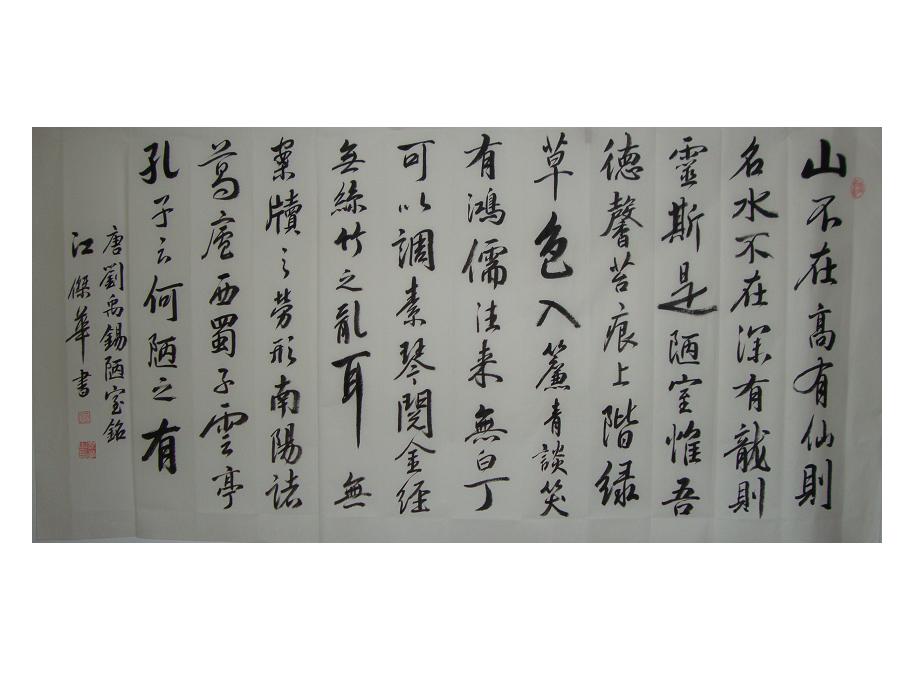 山不在高有仙則
名水不在深有龍則
靈斯是陋室惟吾
德馨苔痕上階緑
草色入簾青談笑
有鴻儒往来無白丁
可以調素琴閲金經
無絲竹之亂耳無
案牘之勞形南陽諸
葛廬西蜀子雲亭
孔子云何陋之有
唐劉禹錫陋室銘
江傑華書